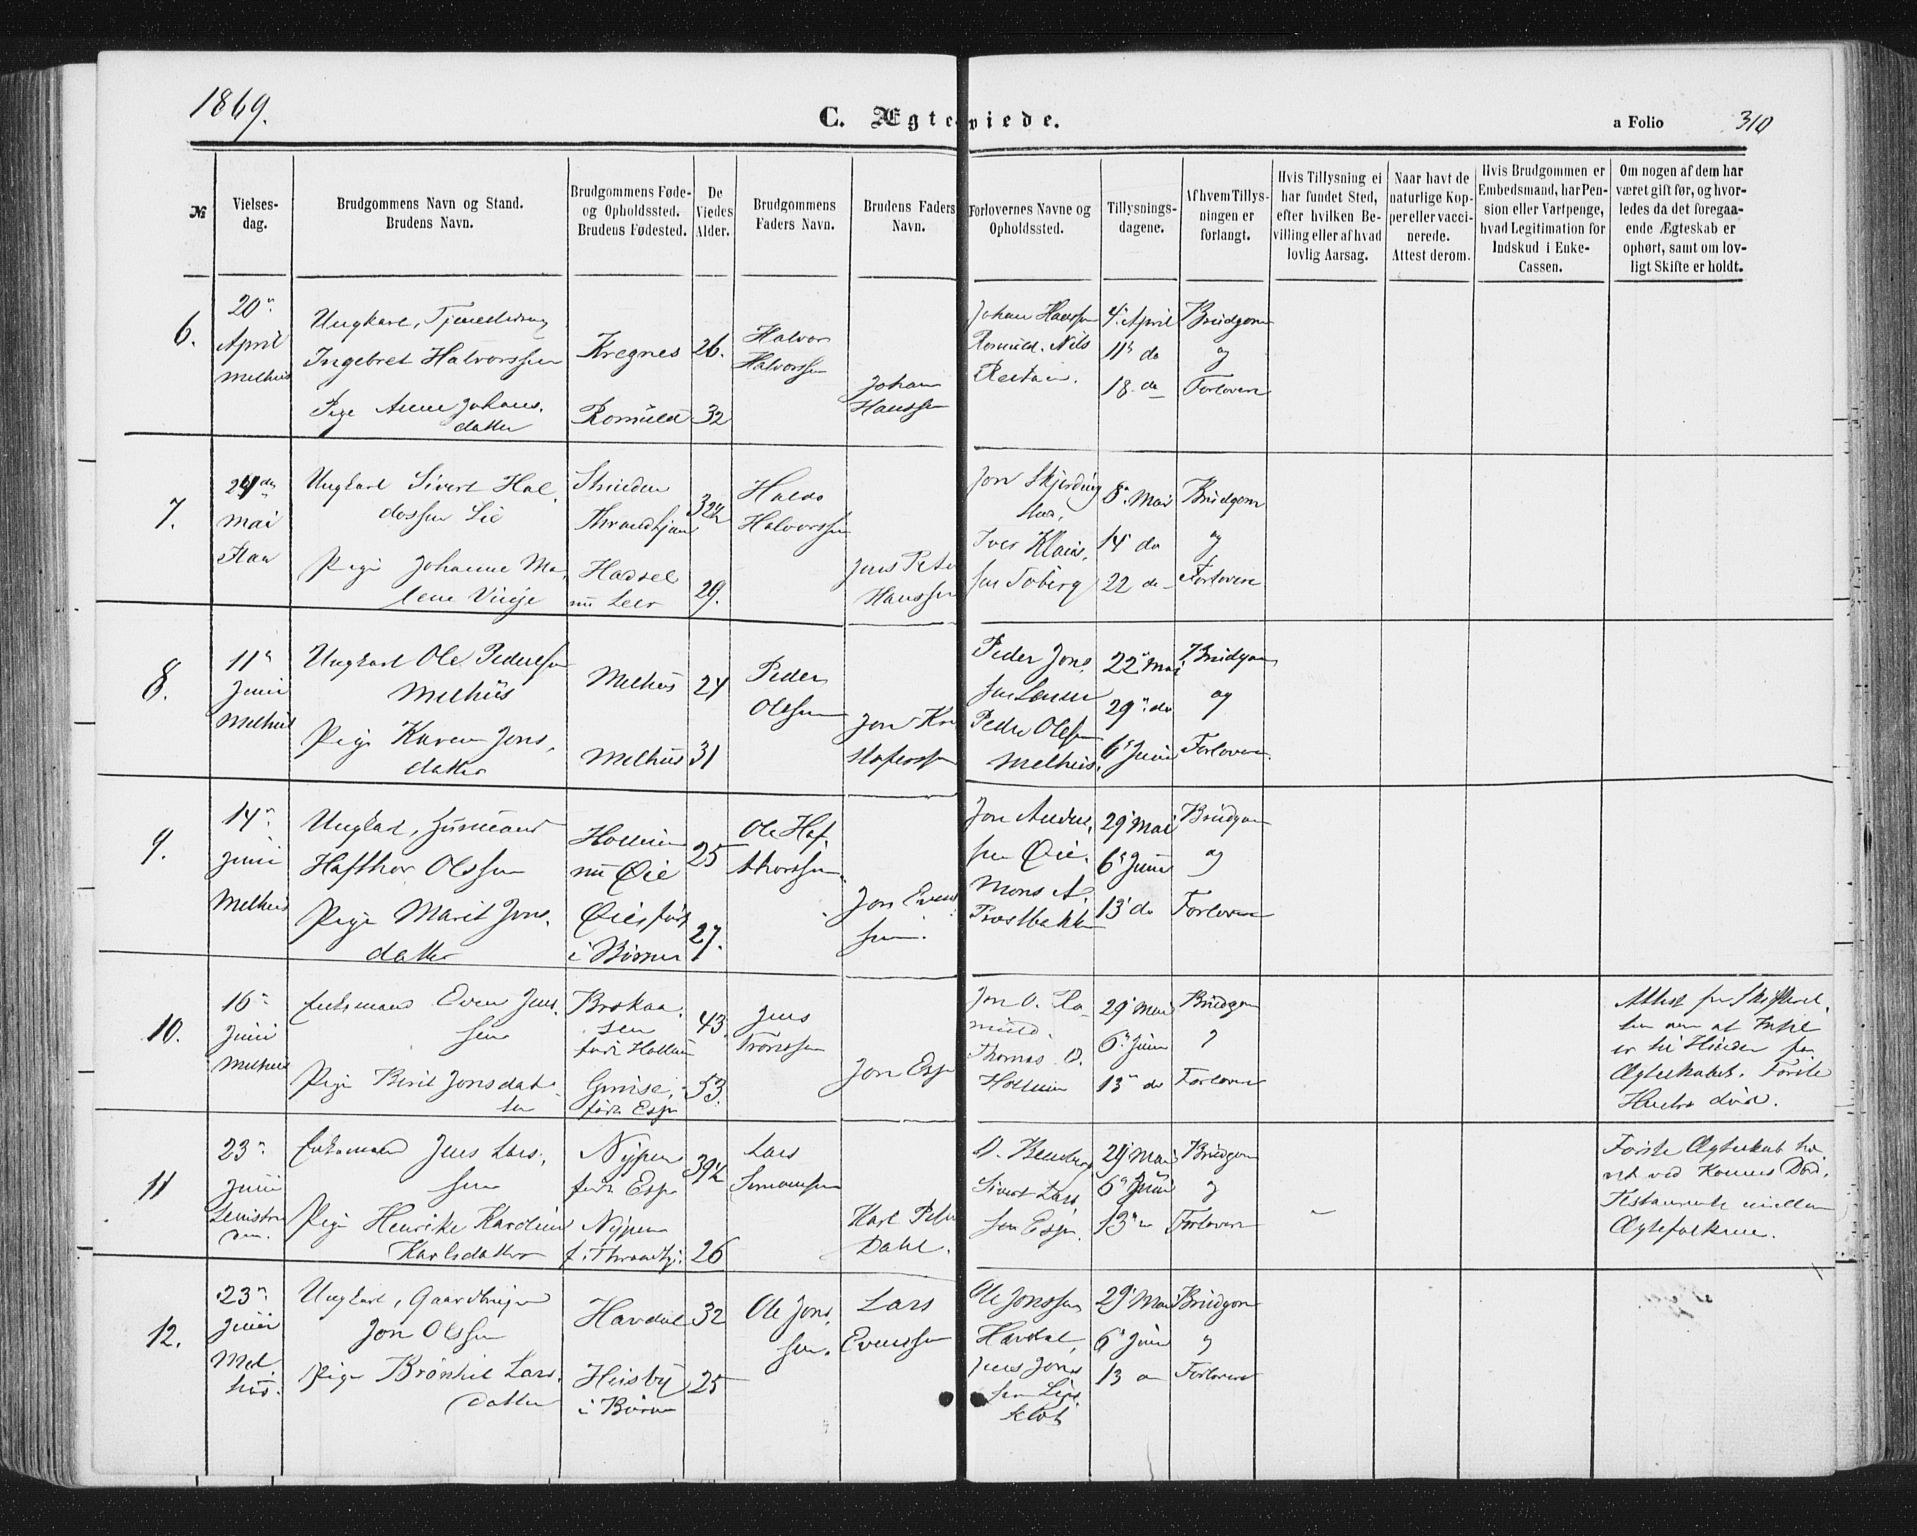 1869.
C. Ægteviede.
a Folio 310
№
Vielses-
dag.
Brudgommens Navn og Stand.
Brudens Navn.
Brudgommens Føde-
og Opholdssted.
Brudens Fødested.
De
Viedes
Alder.
Brudgommens
Faders Navn.
Brudens Faders
Navn.
Forlovernes Navne og
Opholdssted.
Tillysnings-
dagene.
Af hvem Tillys-
ningen er
forlangt.
Hvis Tillysning ei
har fundet Sted,
efter hvilken Be-
villing eller af hvad
lovlig Aarsag.
Naar havt de
naturlige Kop-
per eller vacci-
nerede.
Attest derom.
Hvis Brudgommen er
Embedsmand, har Pen-
sion eller Vartpenge,
hvad Legitimation for
Indskud i Enke-
Cassen.
Om nogen af dem har
været gift før, og hvor-
ledes da det foregaa-
ende Ægteskab er
ophørt, samt om lov-
ligt Skifte er holdt.
6.
20
April
Melhus
Ungkarl,
Ingebret Halvorssen
Pige Anne Johans
datter
Kregnes
Romuld
26.
32
Halvor
Halvorssen
Johan
Hanssen
Johan Hanssen
Romuld. Nils
4 April
11 do
18 do
Brudgom
og
Forlovere
7.
24de
Mai
Flaa
Ungkarl Sivert Hal
dossen Lie
Pige Johanne Ma
lene Vinje
Strinden
Throndhjem
Hadsel
nu Leer
32½
29.
Haldo
Halvorssen
Jens Peter
Hanssen
Jon Skjerding
stad,
Iver Klaus
sen Soberg
8 Mai
14 do
22 do
Brudgom
og
Forlovere
8.
11
Juni
Melhus
Ungkarl Ole Pedersen
Melhus
Pige Karen Jons
datter
Melhus
Melhus
24
31
Peder
Olssen
Jon Kri
stoferssen
Peder Jons
sen
Peder Olssen
Melhus.
22 Mai
29 do
6 Juni
Brudgom
og
Forlovere.
9.
14
Juni
Melhus
Ungkarl, Husmand
Hafthor Olssen
Pige Marit Jons
datter
Hollum
nu Øie
Øie født
i Børsen
25
27.
Ole Haf
thorssen
Jon Evens
sen.
Jon Anders
sen Øie.
Mons A.
Prestbakken
29 Mai
6 Juni
13 do
Brudgom
og
Forlovere
10.
16
Juni
Melhus
Enkemand Even Jens
sen
Pige Berit Jonsdat
ter
født Hollum
født Esp
43
53.
Jens
Tronssen
Jon Esp
Jon O. Ro
muld.
Thomas O.
Hollum
29 Mai
6 Juni
13 do
Brudgom
Forlovere
Attest fra Skifteret
ten om at Intet
er til Hinder for
Ægteskabet. Første
Hustru død.
11
23
Juni
Enkemand Jens Lars
sen
Pige Henrike Karoline
Karlsdatter
Nypen
født Esp
Nypen
f. i Throndhj.
39½
26
Lars
Simonsen
Karl Peter
Dahl.
Sivert Lars
sen Esp.
29 Mai
6 Juni
13
Brudgom
og
Forlovere
Første Ægteskab hæ
vet ved Konens Død.
Testamente mellem
Ægtefolkene.
12.
23
Juni
Mel
hus.
Ungkarl, Gaardbruger
Jon Olssen
Pige Brønhil Lars
datter
Havdal
i Børsen
32
25
Ole Jons
sen.
Lars
Evenssen
Ole Jonssen
Havdal,
Jens Jons
sen
29 Mai
6 Juni
13
Brudgom
og
Forlovere